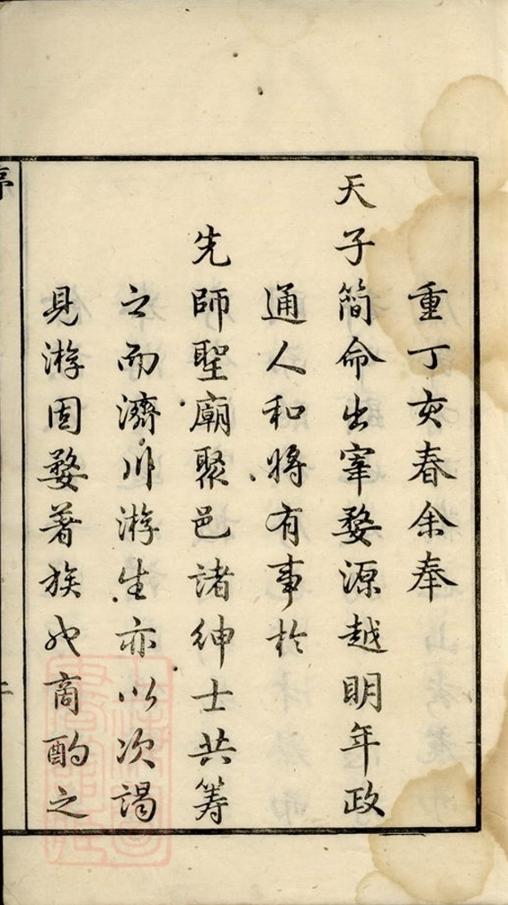 重丁亥春余奉
天子簡命出宰婺源越明年政
通人和將有事於
先師聖廟聚邑諸紳士共籌
之而濟川游生亦以次謁
見游固婺著族也商酌之
序